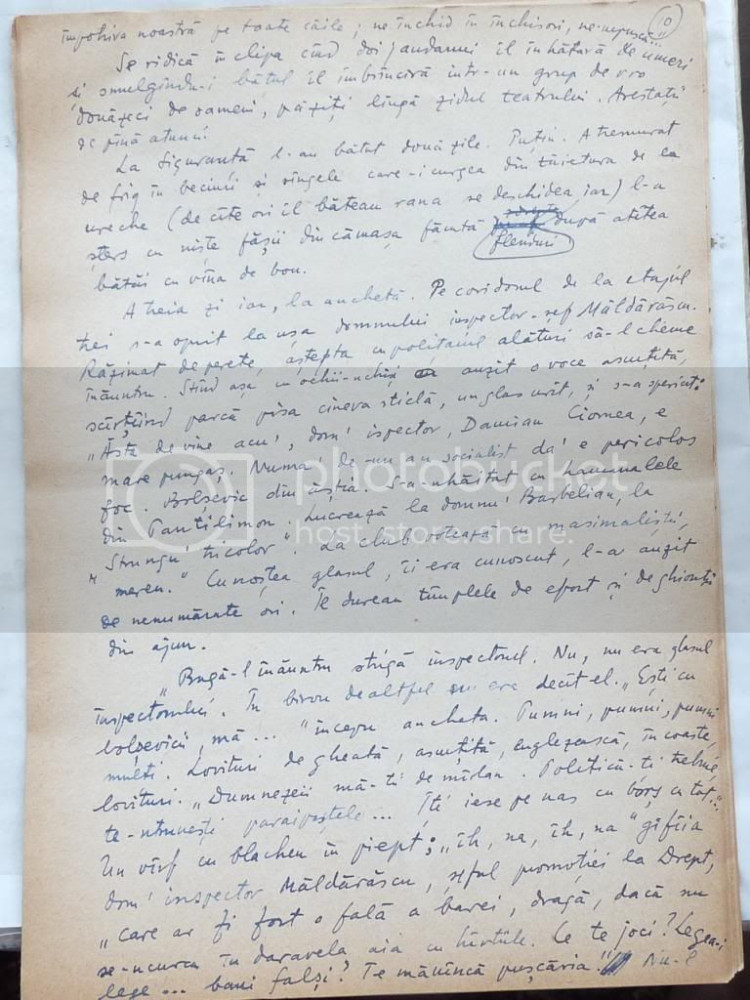 10
împotriva noastră pe toate căile; ne închid în închisori, ne-mpușcă..."
Se ridică în clipa cînd doi jandarmi îl înhățară de umeri
și smulgîndu-i bătul îl îmbrînciră într-un grup de vro
douăzeci de oameni, păziți lîngă zidul teatrului. Arestații
de pînă atunci.
La Siguranță l-au bătut două zile. Puțin. A tremurat
de frig în beciuri și sîngele care-i curgea din tăietura de la
ureche (de cîte ori îl băteau rana se deschidea iar) l-a
șters cu niște fîșii din cămașa făcută după atîtea
flenduri
bătăi cu vîna de bou.
A treia zi iar, la anchetă. Pe coridorul de la etajul
trei s-a oprit la ușa domnului inspector-șef Măldărăscu.
Răzimat de perete, aștepta cu polițaiul alături să-l cheme
înăuntru. Stînd așa cu ochii-nchiși a auzit o voce ascuțită,
scîrțîind parcă pisa cineva sticlă, un glas urît, și s-a speriat:
„Ăsta de vine acu', dom' ispector, Damian Ciornea, e
mare pungaș. Numa' de-un an socialist da' e pericolos
foc. Bolșevic din ăștia. S-a-nhăitat cu hamanalele
din Pantilimon. Lucrează la domnu' Barbelian, la
"Strungu tricolor". La club votează cu maximaliștii,
mereu." Cunoștea glasul, îi era cunoscut, l-a auzit
de nenumărate ori. Îl dureau tîmplele de efort și de ghionții
din ajun.
„Bagă-l înăuntru strigă inspectorul. Nu, nu era glasul
inspectorului. În birou dealtfel nu era decît el. „Ești cu
bolșevicii, mă... "începu ancheta. Pumni, pumni, pumni
mulți. Lovituri de gheată, ascuțită, englezească, în coaste,
lovituri. „Dumnezeii mă-ti de mîrlan. Politică-ți trebuie,
te-ntrunești paraipaștele... Îți iese pe nas cu borș cu tot."
Un vîrf cu blacheu în piept; „îh, na, îh, na" gîfîia
dom' inspector Măldărăscu, șeful promoției la Drept,
„care ar fi fost o fală a barei, dragă, dacă nu
se-ncurca în daravela aia cu hîrtiile. Ce te joci? Legea-i
lege... bani falși? Te mănîncă pușcăria." Nu-l
photobucket
host. store. share.